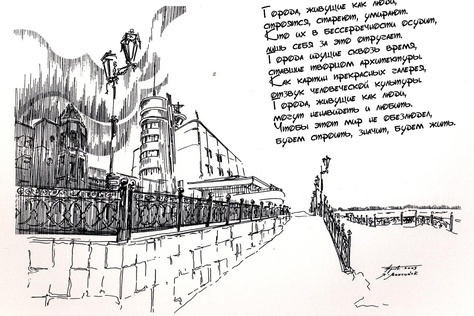 Города, живущие как люди,
строятся, стареют, умирают.
Кто их в бессердечности осудит,
лишь себя за это отругает.
Города идущие сквозь время,
ставшие творцом архитектуры.
Как картин прекрасных галерея,
отзвук человеческой культуры.
Города, живущие как люди,
могут ненавидеть и любить.
Чтобы этот мир не обезлюдел,
будем строить, значит, будем жить.